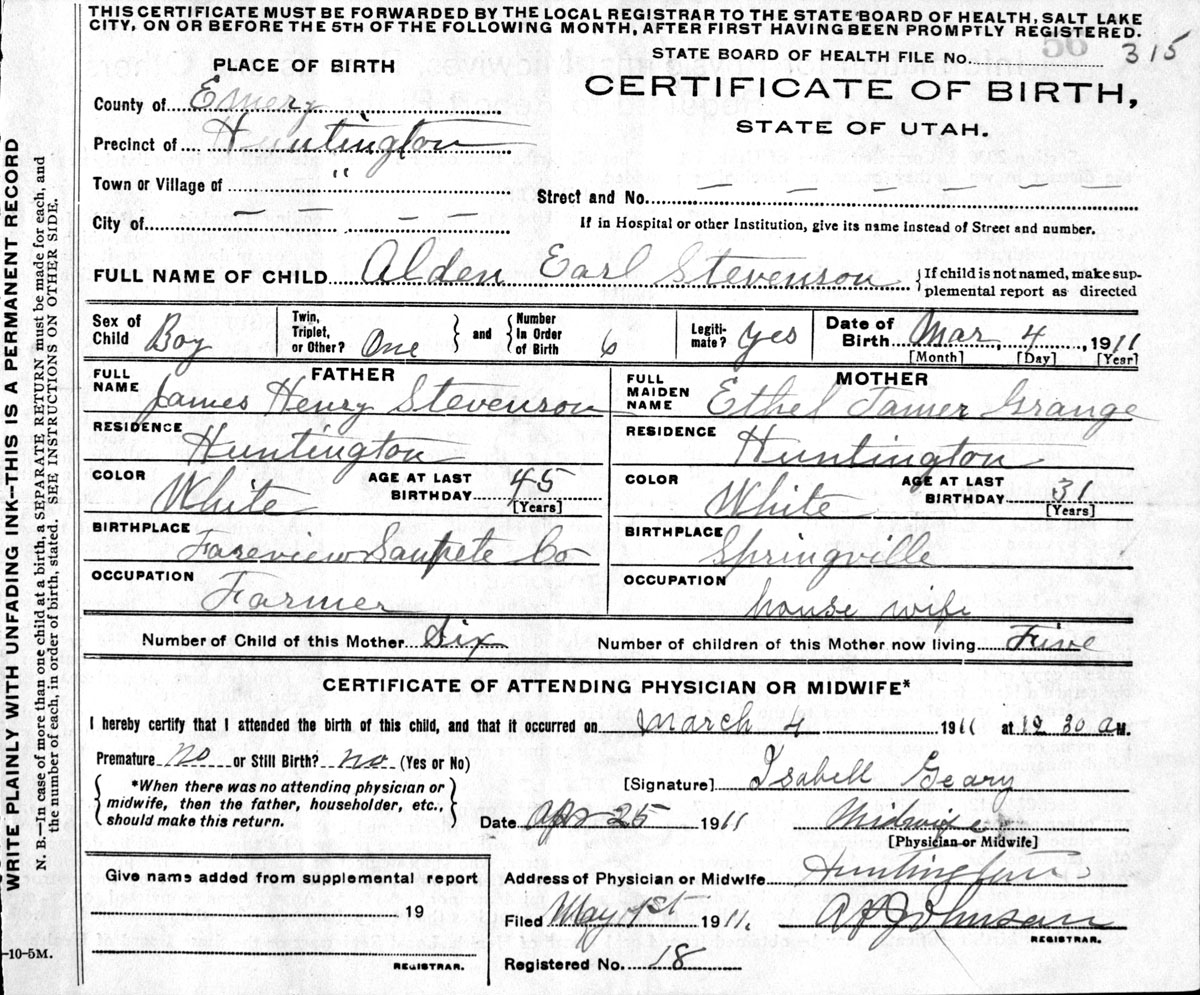 THIS CERTIFICATE MUST BE FORWARDED BY THE LOCAL REGISTRAR TO THE STATE BOARD OF HEALTH, SALT LAKE
CITY, ON OR BEFORE THE 5TH OF THE FOLLOWING MONTH, AFTER FIRST HAVING BEEN PROMPTLY REGISTERED.
56
STATE BOARD OF HEALTH FILE No. 315
PLACE OF BIRTH
CERTIFICATE OF BIRTH,
STATE OF UTAH.
County of Emery
Precinct of Huntington
Town or Village of "
Street and No. — — — — — — —
City of — — —
If in Hospital or other Institution, give its name instead of Street and number.
FULL NAME OF CHILD Alden Earl Stevenson {If child is not named, make sup-
plemental report as directed
Sex of Child Boy Twin, Triplet, or Other? One } and { Number In Order of Birth 6 Legiti- mate? yes Date of Birth Mar, 4, 1911
[Month] [Day] [Year]
FATHER MOTHER
FULL NAME James Henry Stevenson FULL MAIDEN NAME Ethel Tamer Grange
RESIDENCE Huntington RESIDENCE Huntington
COLOR White AGE AT LAST BIRTHDAY 45 [Years] COLOR White AGE AT LAST BIRTHDAY 31 [Years]
BIRTHPLACE Fareview Sanpete Co BIRTHPLACE Springville
OCCUPATION Farmer OCCUPATION house wife
Number of Child of this Mother Six Number of children of this Mother now living Five
CERTIFICATE OF ATTENDING PHYSICIAN OR MIDWIFE*
I hereby certify that I attended the birth of this child, and that it occurred on March 4 1911 at 12 30 a M.
Premature no or Still Birth? no (Yes or No)
[Signature] Isabell Geary
{ *When there was no attending physician or
midwife, then the father, householder, etc.,
should make this return. }
Date Apr 25 1911 Midwife
[Physician or Midwife]
Give name added from supplemental report
Address of Physician or Midwife Huntington
19
Filed May 1st 1911. Johnson
REGISTRAR.
REGISTRAR.
Registered No. 18
-10-5M.
WRITE PLAINLY WITH UNFADING INK--THIS IS A PERMANENT RECORD
N. B.—In case of more than one child at a birth, a SEPARATE RETURN must be made for each, and
the number of each, in order of birth, stated. SEE INSTRUCTIONS ON OTHER SIDE.